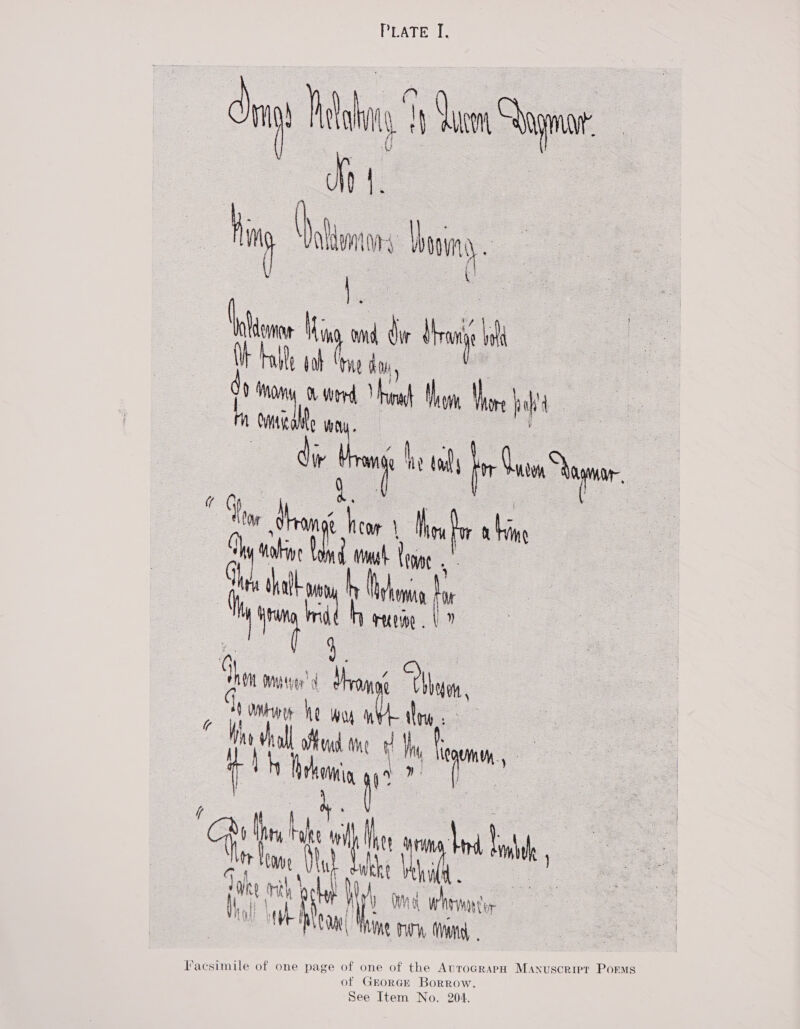 PLATE I.
Songs Relating To Queen Dagmar.
No 1.
King Valdemars Wooing.
1.
Valdemar King and Sir Strangè bold
At table sat one day,
So many a word 'twixt them there pass'd
In amicable way.
Sir Strange he sails for Queen Dagmar.
2.
“ Hear Strangè hear! Thou for a time
Thy native land must leave;
Thou shalt away to Bohemia far
My young bride to receive. ”
3.
Then answer'd Strangè Ebbesen,
To answer he was not slow:
“ Who shall attend me of thy liegemen,
If I to Bohemia go? ”
4.
“ Do thou take with thee young Lord Limbek,
Nor leave Oluf Lukke behind.
Take rich Peter and whomsoever
Shall best please thine own mind.
Facsimile of one page of one of the Autograph Manuscript Poems
of George Borrow.
See Item No. 204.